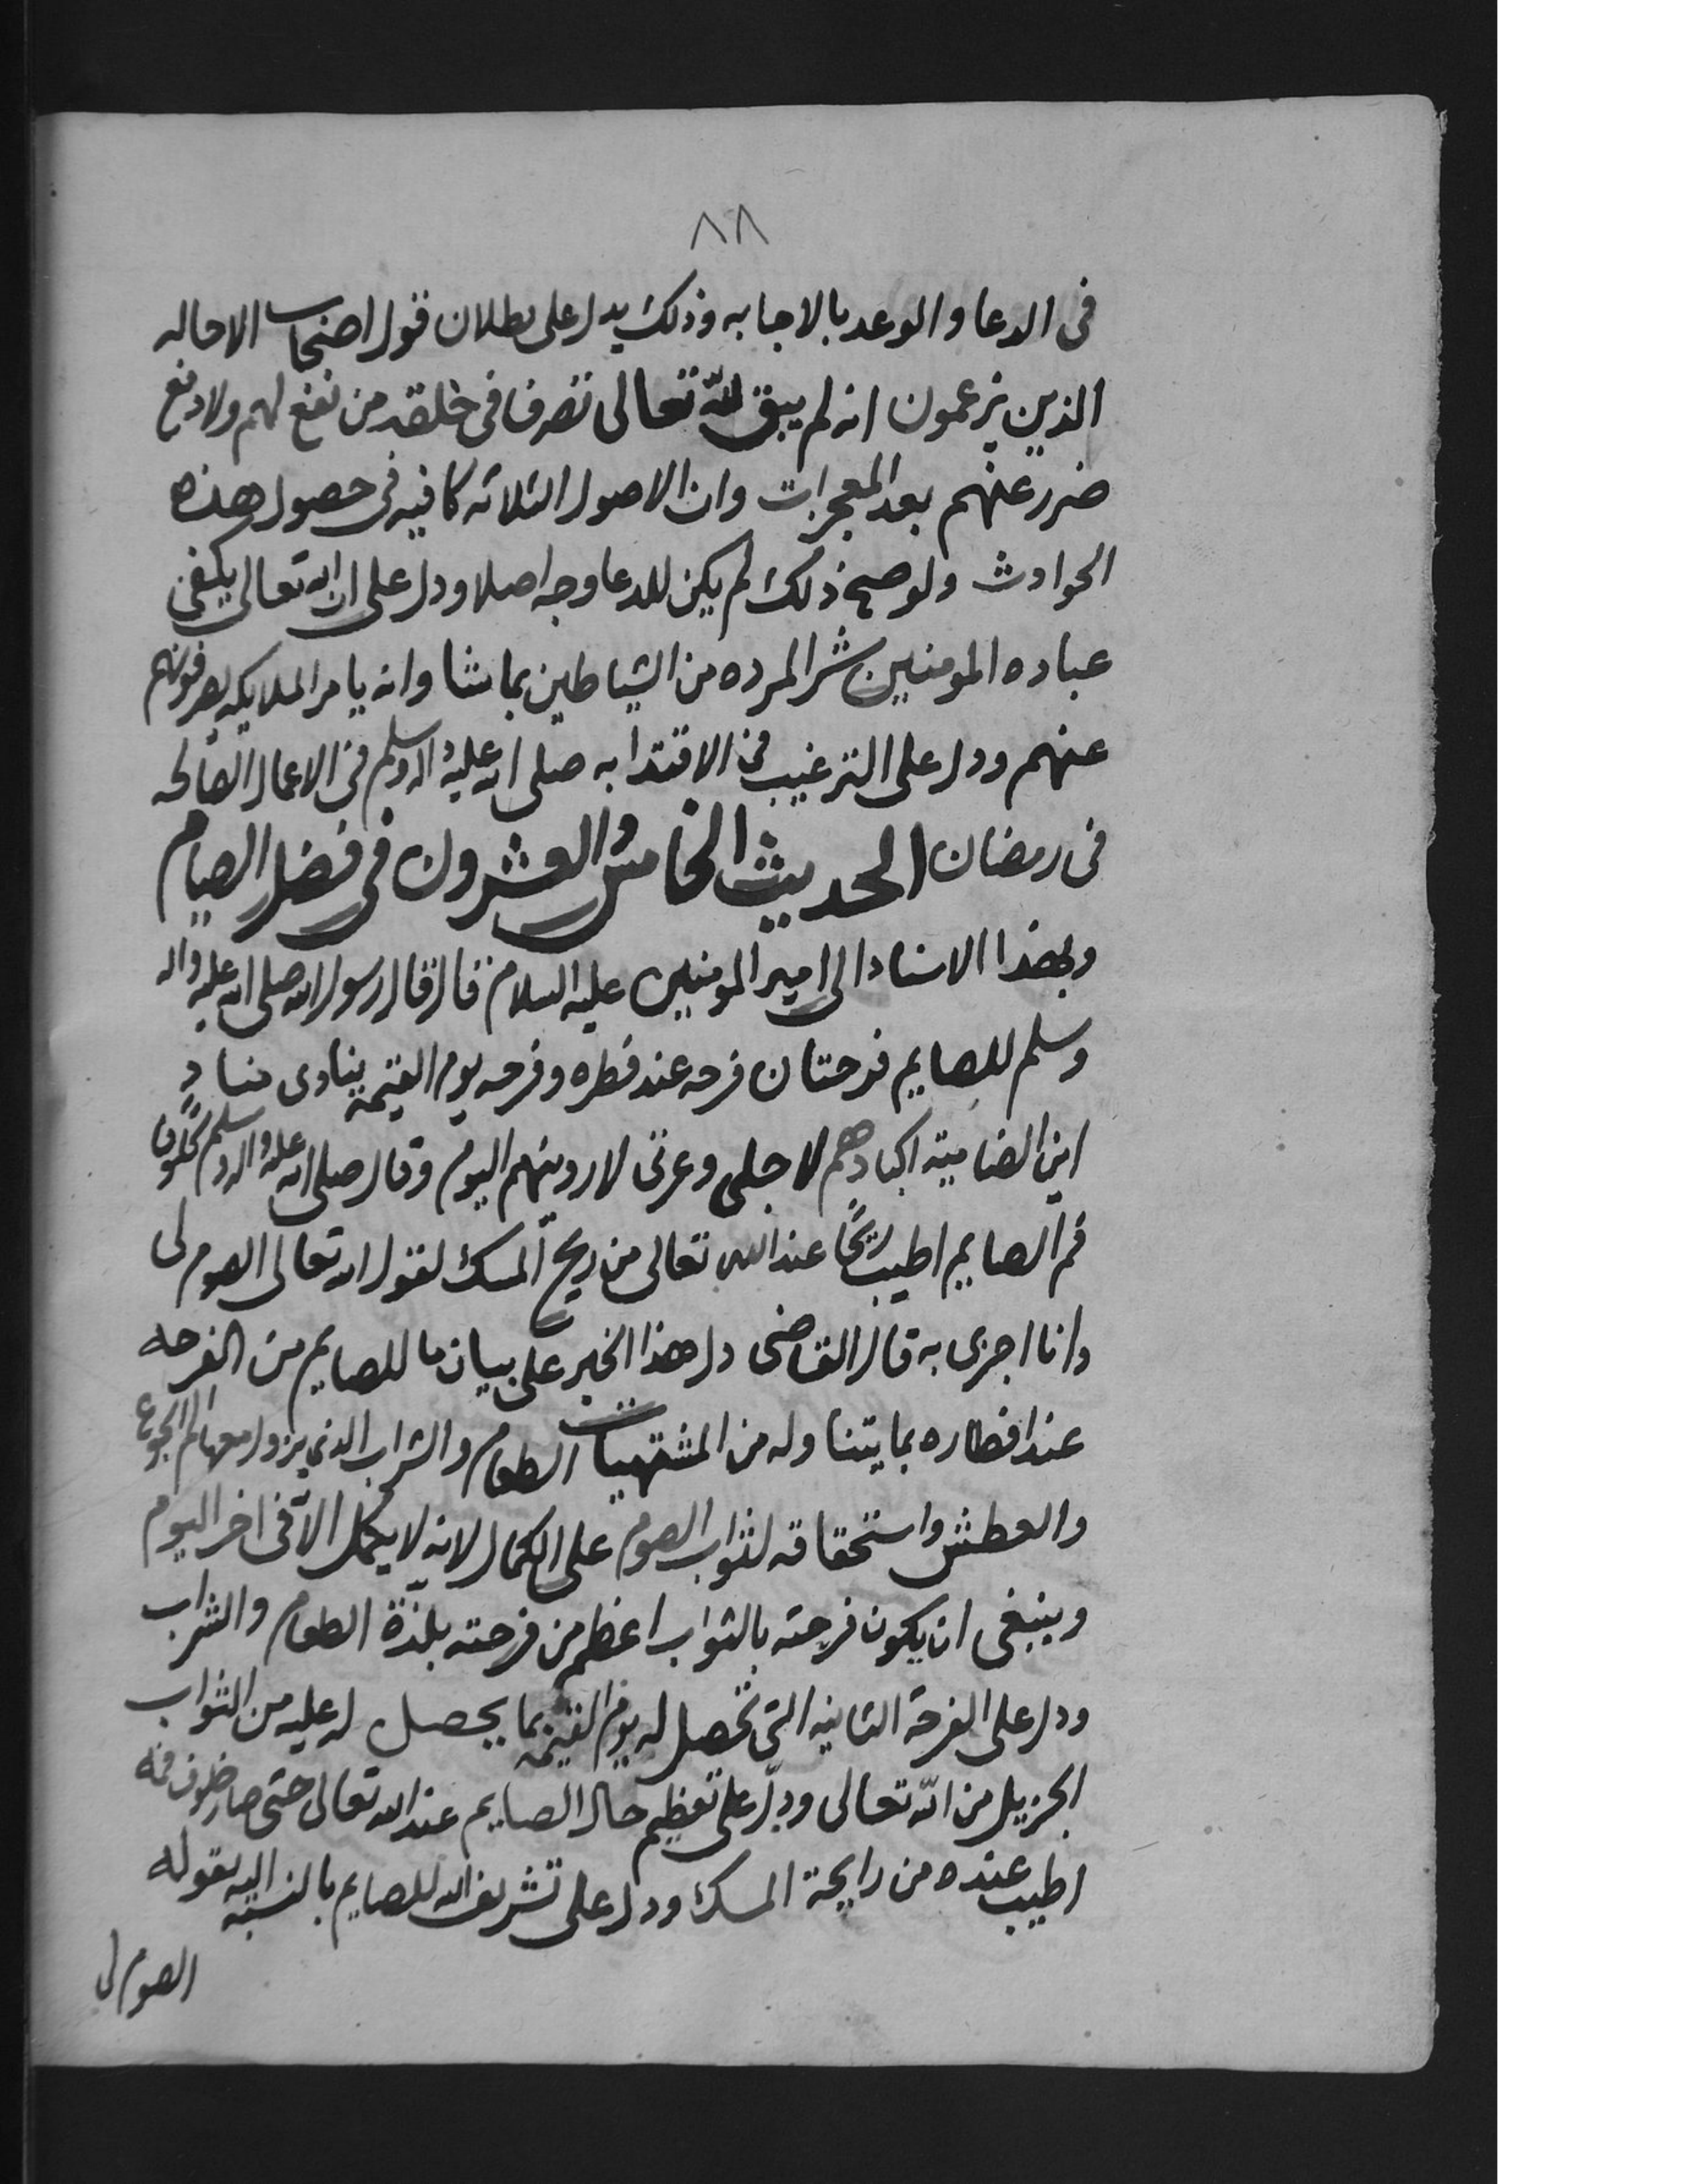 ٨٨
فى الدعا والوعد بالاجابه وذلك يدل على بطلان قول اصحاب الاحاله
الذين يزعمون انه لم يبق لله تعالى تصرف فى خلقه من نفع لهم ولا دفع
ضرر عنهم بعد المعجزات وان الاصول الثلاثه كافيه فى حصول هذه
الحوادث ولو صح ذلك لم يكن للدعا وجه اصلا ودل على ان الله تعالى يكفى
عباده المومنين شر المرده من الشياطين بما شا وانه يامر الملايكه يصرفونهم
عنهم ودل على الترغيب فى الاقتدا به صلى الله عليه واله وسلم فى الاعمال الصالحه
فى رمضان الحديث الخامس والعشرون فى فضل الصيام
وبهذا الاسناد الى امير المومنين عليه السلام قال قال رسول الله صلى الله عليه واله
وسلم للصايم فرحتان فرحه عند فطره وفرحه يوم القيمة ينادى منادٍ
اين الضامية اكبادهم لاجلى وعزتى لاروينهم اليوم وقال صلى الله عليه واله وسلم لخلوف
فم الصايم اطيب ريحًا عند الله تعالى من ريح المسك لقول الله تعالى الصوم لى
وانا اجزى به قال القاضى دل هذا الخبر على بيان ما للصايم من الفرحه
عند افطاره بما يتناوله من المشتهيات الطعام والشراب الذي يزول معها الم الجوع
والعطش واستحقاقه لثواب الصوم على الكمال لانه لا يكمل الا فى اخر اليوم
وينبغى ان يكون فرحته بالثواب اعظم من فرحته بلذة الطعام والشراب
ودل على الفرحة الثانيه التى تحصل له يوم القيمة بما يحصل له عليه من الثواب
الجزيل من الله تعالى ودلّ على تعظيم حال الصايم عند الله تعالى حتى صار خلوف فمه
اطيب عنده من رايحة المسك ودل على تشريف الله للصايم بالنسبه اليه بقوله
الصوم لى